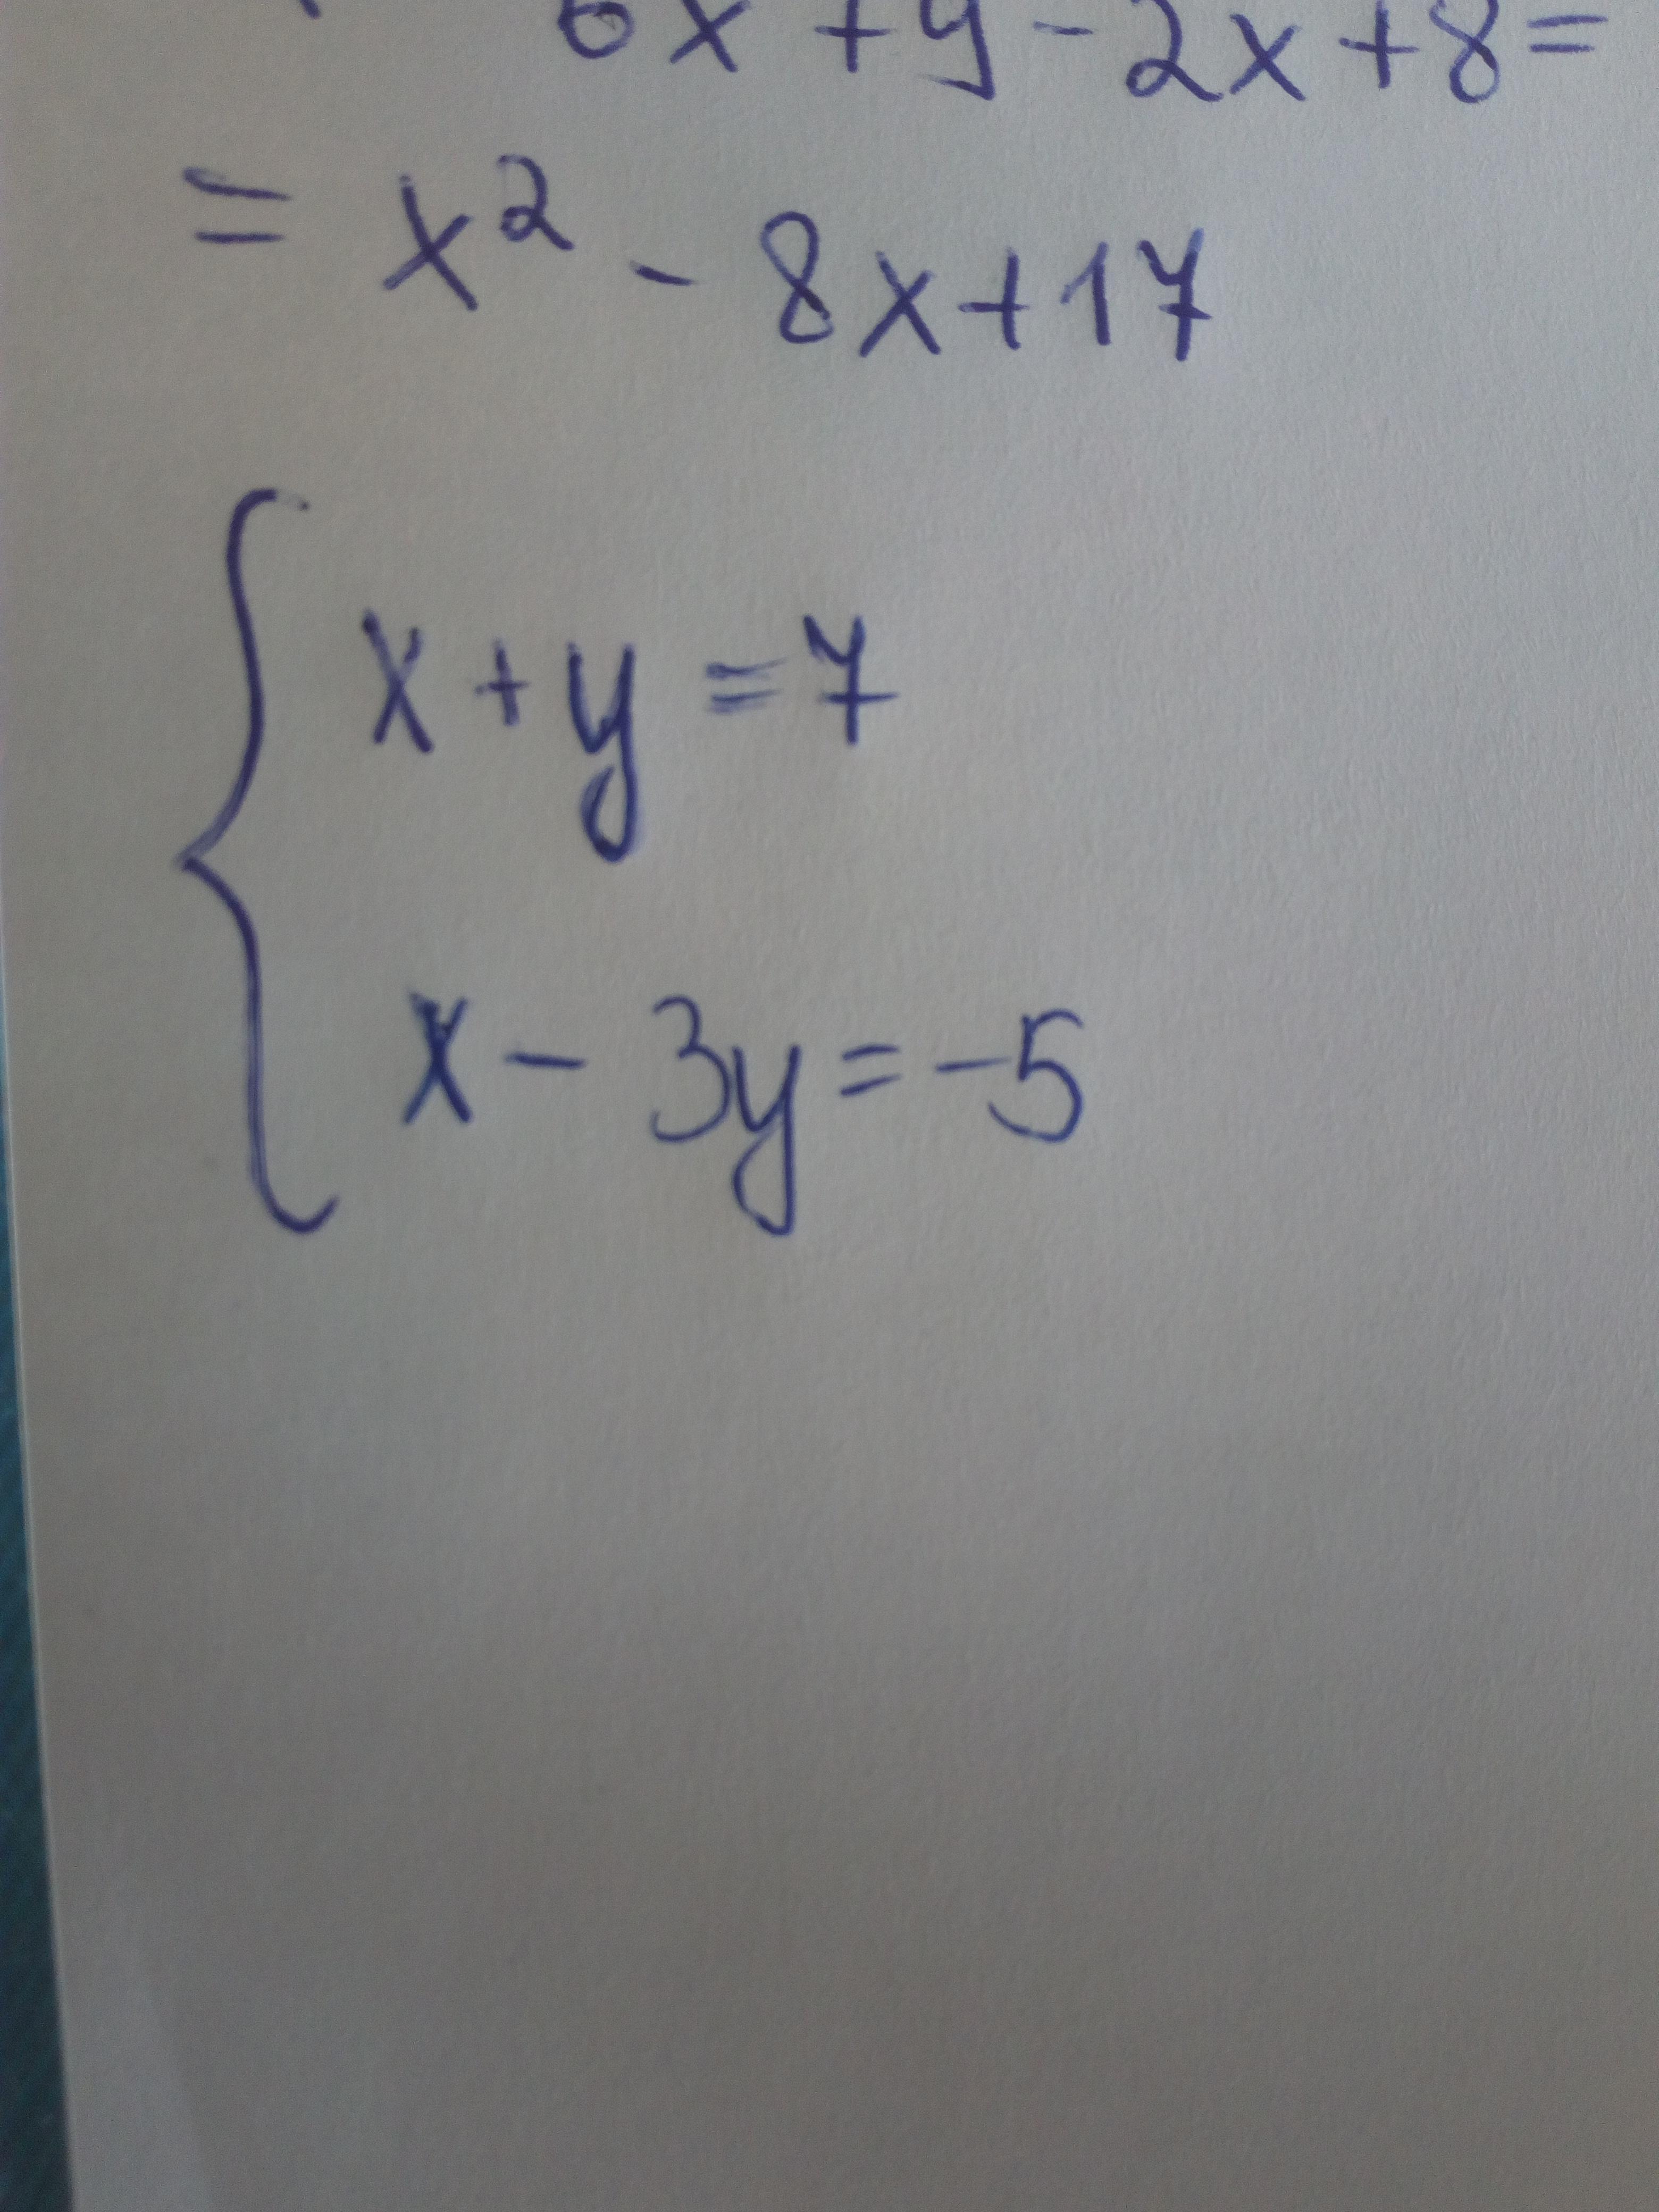 6x + y - 2x + 8 =
= x² - 8x + 17
x + y = 7
x - 3y = -5